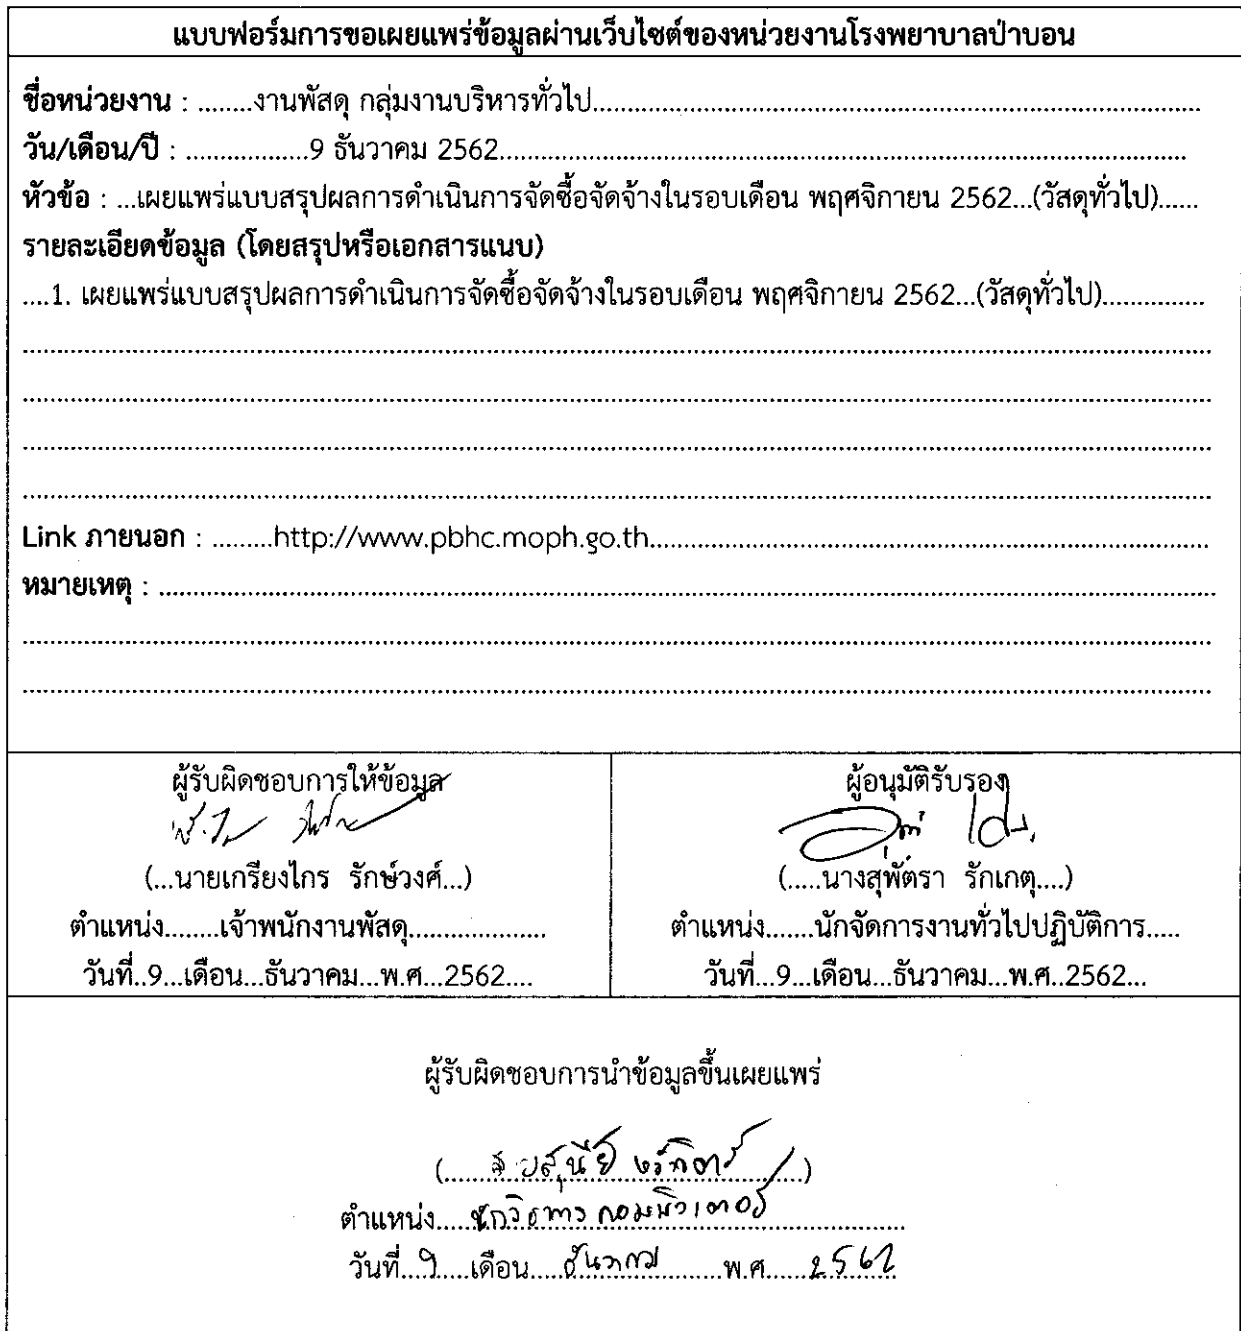 แบบฟอร์มการขอเผยแพร่ข้อมูลผ่านเว็บไซต์ของหน่วยงานโรงพยาบาลป่าบอน
ชื่อหน่วยงาน : ........งานพัสดุ กลุ่มงานบริหารทั่วไป........
วัน/เดือน/ปี : ..................9 ธันวาคม 2562........
หัวข้อ : ...เผยแพร่แบบสรุปผลการดำเนินการจัดซื้อจัดจ้างในรอบเดือน พฤศจิกายน 2562...(วัสดุทั่วไป)......
รายละเอียดข้อมูล (โดยสรุปหรือเอกสารแนบ)
....1. เผยแพร่แบบสรุปผลการดำเนินการจัดซื้อจัดจ้างในรอบเดือน พฤศจิกายน 2562...(วัสดุทั่วไป)...............
Link ภายนอก : .........http://www.pbhc.moph.go.th........
หมายเหตุ : ........
ผู้รับผิดชอบการให้ข้อมูล
(...นายเกรียงไกร รักษ์วงศ์...)
ตำแหน่ง........เจ้าพนักงานพัสดุ....................
วันที่..9...เดือน...ธันวาคม...พ.ศ...2562....
ผู้อนุมัติรับรอง
(.....นางสุพัตรา รักเกตุ....)
ตำแหน่ง.......นักจัดการงานทั่วไปปฏิบัติการ.....
วันที่...9...เดือน...ธันวาคม...พ.ศ..2562...
ผู้รับผิดชอบการนำข้อมูลขึ้นเผยแพร่
ตำแหน่ง.....นักวิชาการคอมพิวเตอร์
วันที่...9.....เดือน.....ธันวาคม.........พ.ศ......2562